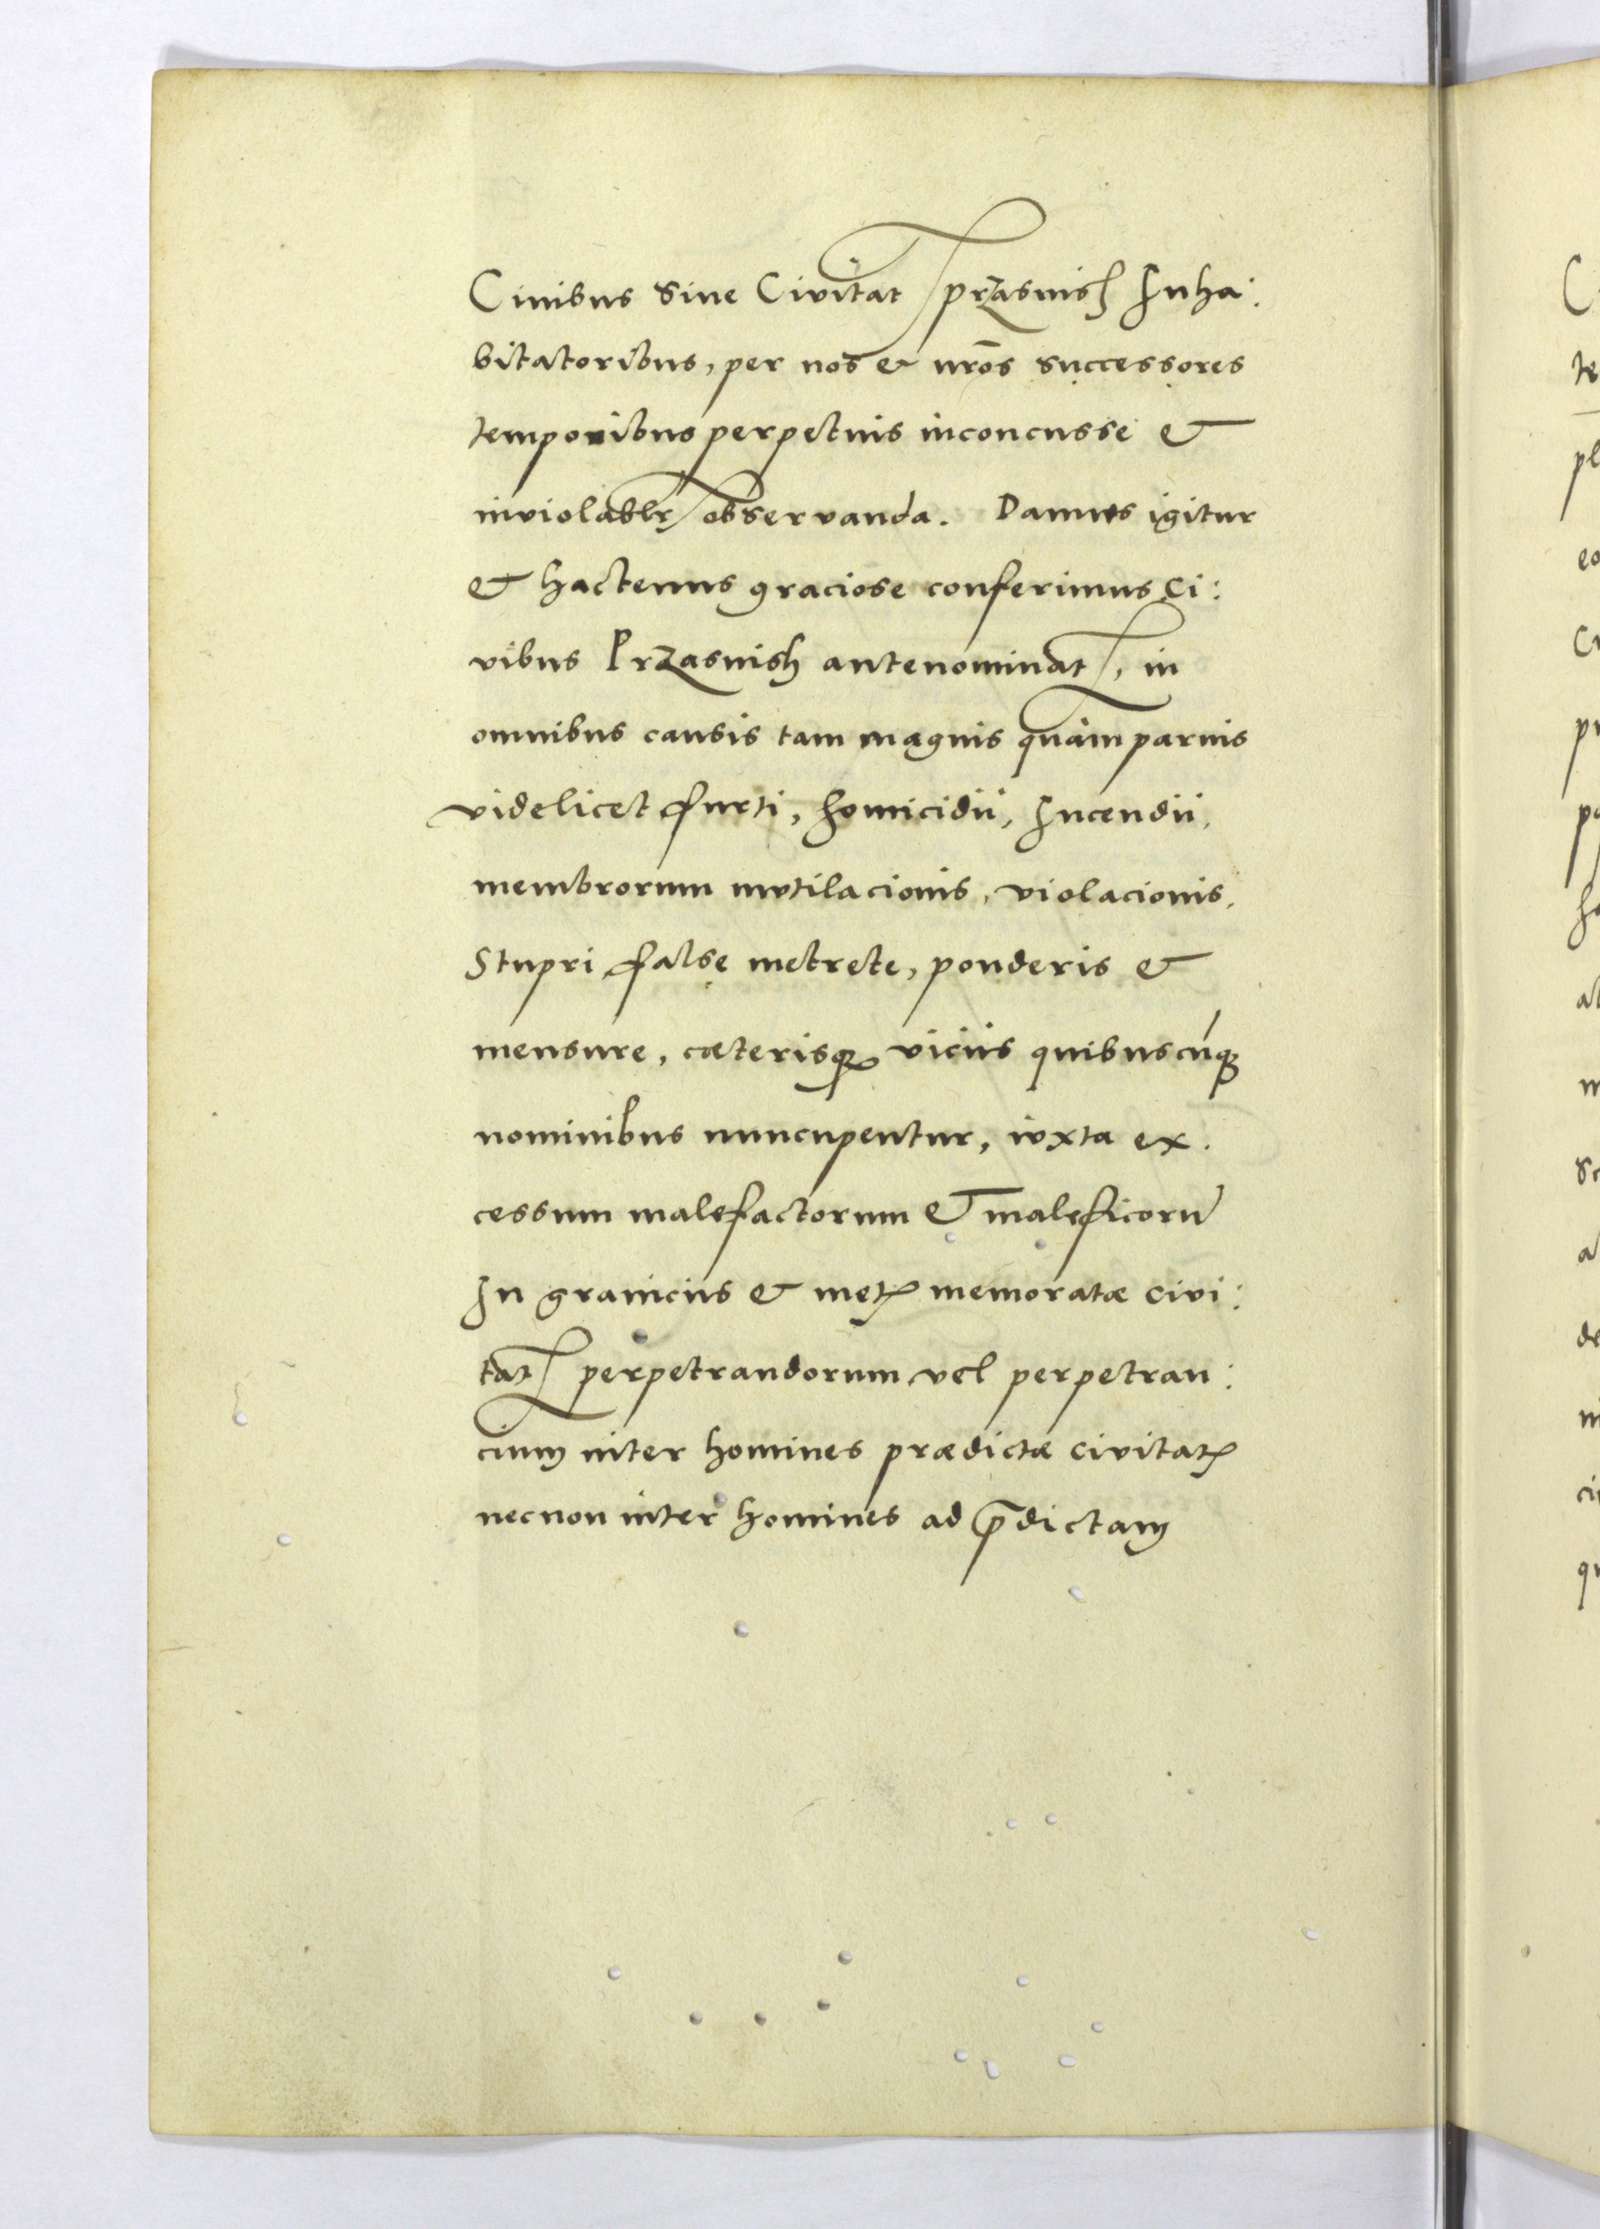 Ciuibus siue Civitat Przasnish Inha:
bitatoribus, per nos & nr̄os successores
temporibus perpetuis inconcusse &
inviolablr observanda. Damus igitur
& hactenus graciose conferimus Ci:
vibus Przasnish antenominat, in
omnibus causis tam magnis quàm paruis
videlicet furti, homicidii, Incendii,
membrorum mutilacionis, violacionis,
Stupri false metrete, ponderis &
mensure, cæterisqꝫ viciis quibuscúnqꝫ
nominibus nuncupentur, iuxta ex.
cessum malefactorum & maleficorū
In graniciis & metꝭ memoratæ civi:
tatꝭ perpetrandorum vel perpetran:
cium inter homines prædictæ civitatꝭ
necnon inter homines ad p̄dictam